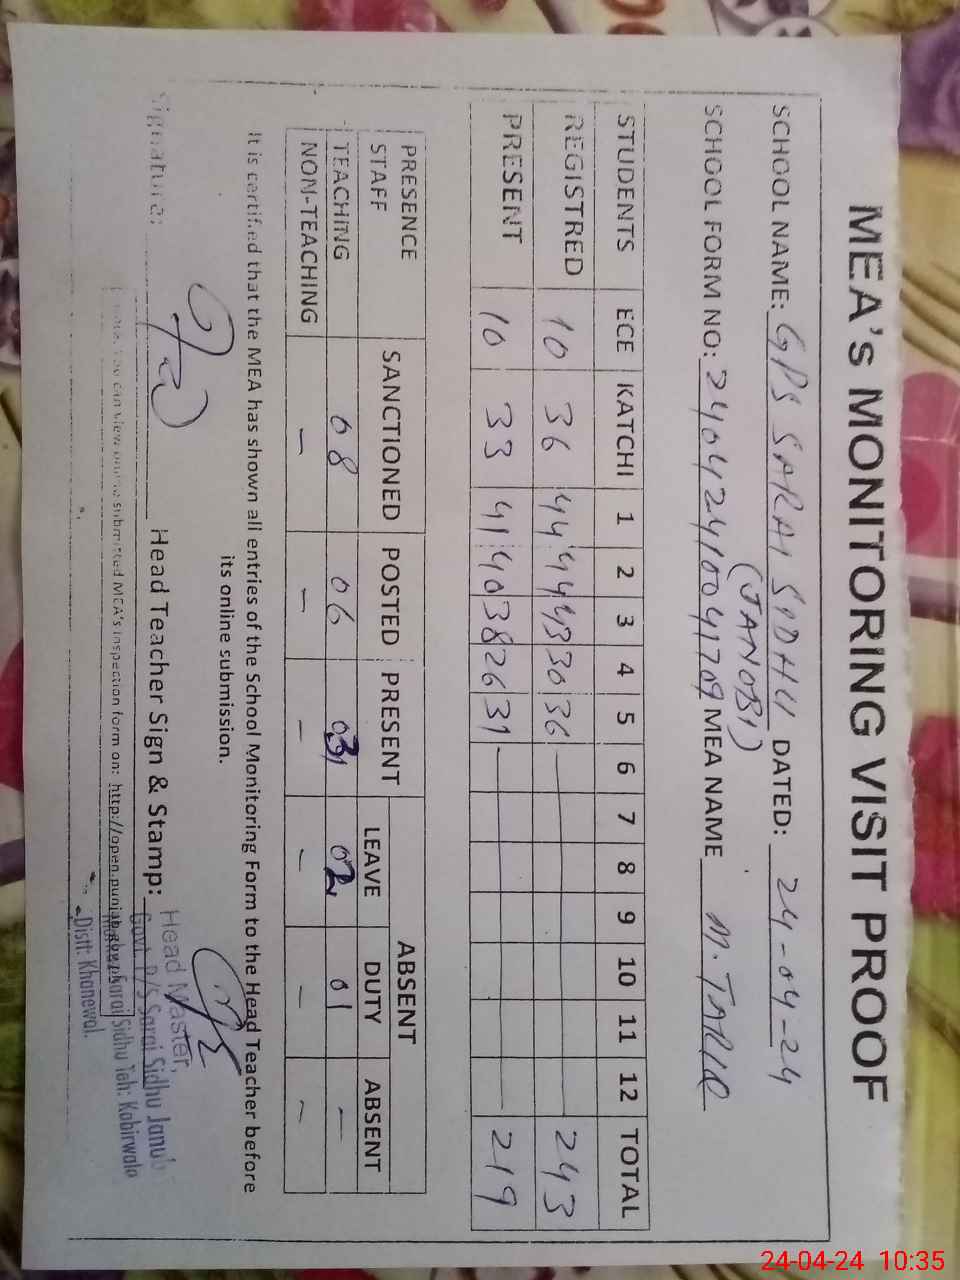 MEA's MONITORING VISIT PROOF
SCHOOL NAME: GPS SARAI SIDHU DATED: 24-04-24
(JANOBI)
SCHOOL FORM NO: 24042410041709 MEA NAME M. TARIQ
STUDENTS ECE KATCHI 1 2 3 4 5 6 7 8 9 10 11 12 TOTAL
REGISTRED 10 36 44 44 43 30 36 243
PRESENT 10 33 41 40 38 26 31 219
PRESENCE SANCTIONED POSTED PRESENT ABSENT
STAFF LEAVE DUTY ABSENT
TEACHING 08 06 03 02 01 –
NON-TEACHING – – – – – –
It is certified that the MEA has shown all entries of the School Monitoring Form to the Head Teacher before
its online submission.
Signature: Head Teacher Sign & Stamp:
Head Master,
Govt. P/S Sarai Sidhu Janubi
Sarai Sidhu Teh: Kabirwala
Distt: Khanewal.
you can view online submitted MEA's inspection form on: http://open.punjab.gov.pk
24-04-24 10:35